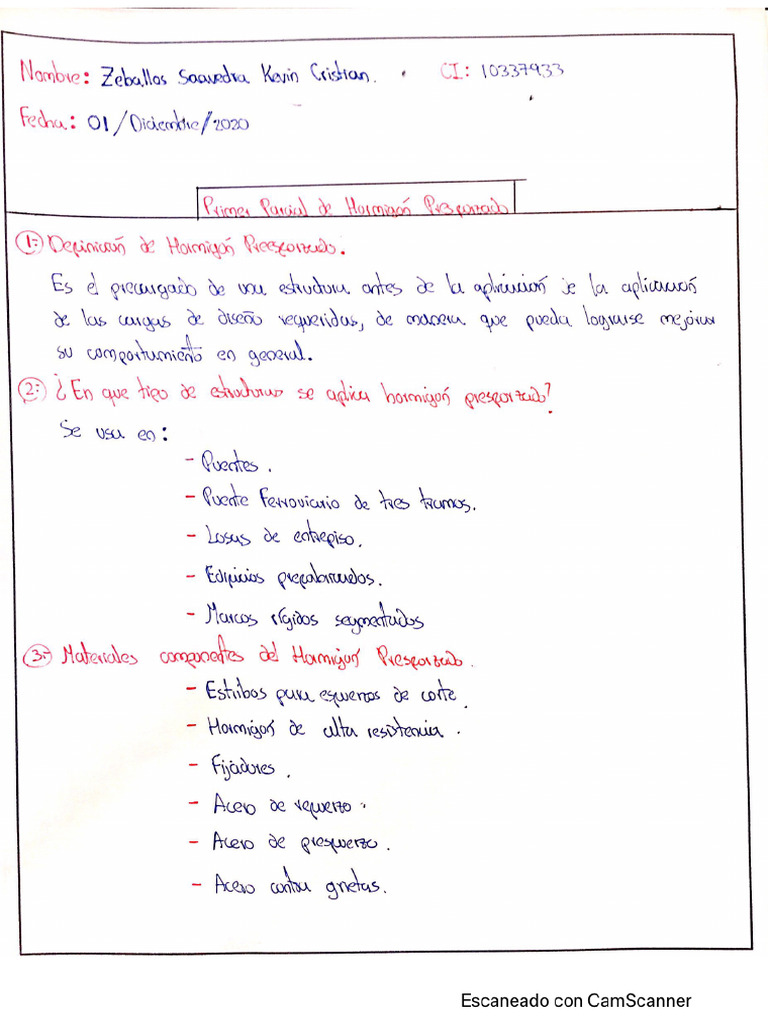 Nombre: Zeballos Saavedra Kevin Cristian. CI: 10337933
Fecha: 01/Diciembre/2020
Primer Parcial de Hormigón Presforzado
1: Definición de Hormigón Preesforzado.
Es el precargado de una estructura antes de la aplicación de la aplicación
de las cargas de diseño requeridas, de manera que pueda lograrse mejorar
su comportamiento en general.
2: ¿En que tipo de estructuras se aplica hormigón presforzado?
Se usa en:
- Puentes.
- Puente Ferroviario de tres tramos.
- Losas de entrepiso.
- Edificios prefabricados.
- Marcos rígidos segmentados
3.- Materiales componentes del Hormigón Presforzado.
- Estribos para esfuerzos de corte.
- Hormigón de alta resistencia.
- Fijadores.
- Acero de refuerzo.
- Acero de presfuerzo.
- Acero contra grietas.
Escaneado con CamScanner